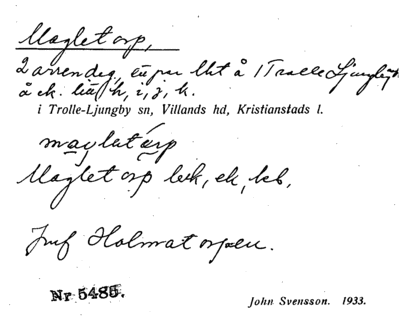 Magletorp,
2 arrendeg., en par lht å Trolle Ljungby
å ek. h, i, j, k.
i Trolle-Ljungby sn, Villands hd, Kristianstads l.
maglatårp
Magletorp lek, ek, kb,
Jmf Holmatorpen.
Nr 5485.
John Svensson. 1933.